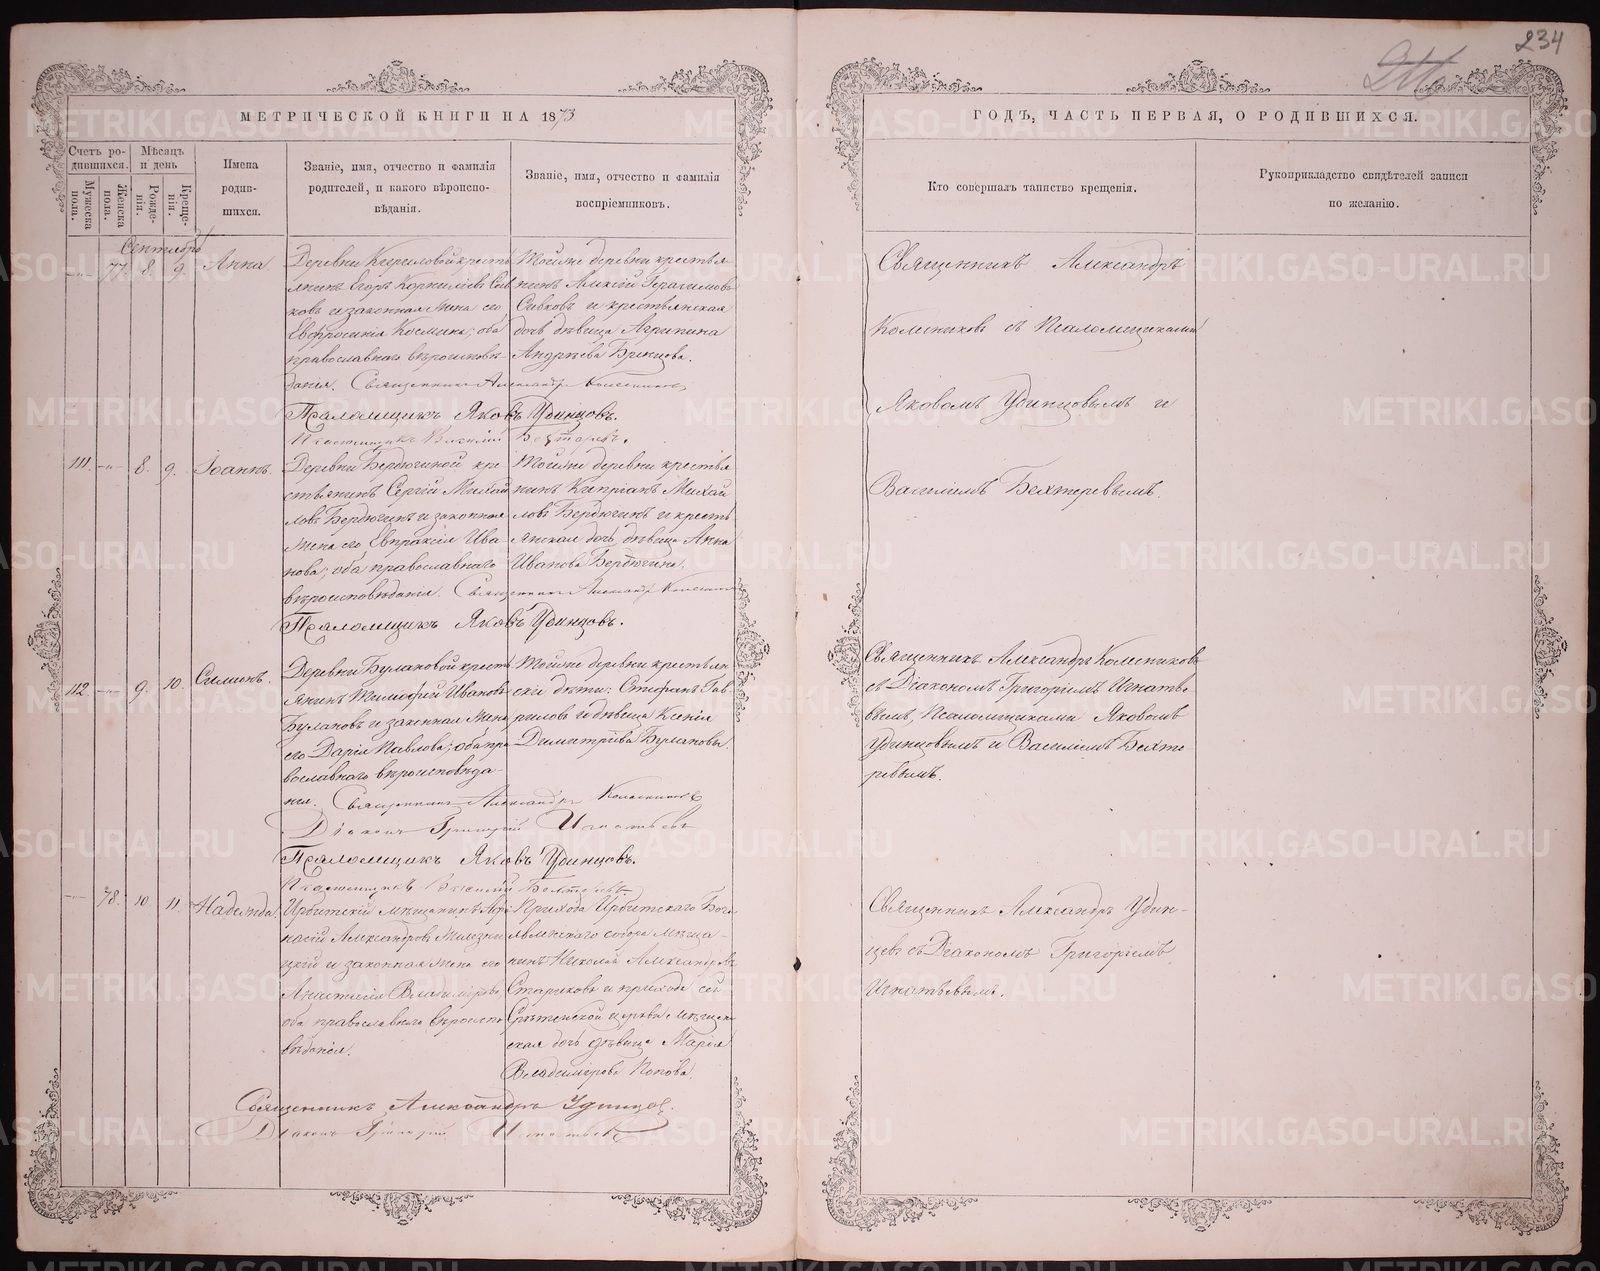 234
МЕТРИЧЕСКОЙ КНИГИ НА 1873
ГОДЪ, ЧАСТЬ ПЕРВАЯ, О РОДИВШИХСЯ.
Счетъ ро-
дившихся.
Мужеска
пола.
Женска
пола.
Мѣсяцъ
и день
Рожде-
нія.
Креще-
нія.
Имена
родив-
шихся.
Званіе, имя, отчество и фамилія
родителей, и какого вѣроиспо-
вѣданія.
Званіе, имя, отчество и фамилія
воспріемниковъ.
Кто совершалъ таинство крещенія.
Рукоприкладство свидѣтелей записи
по желанію.
Сентябрь
77. 8. 9. Анна.
Деревни крестъ
янинъ Егоръ Корнилѣевъ Сив
ковъ и законная жена его
Евфросинія Косьмина; оба
православнаго вѣроисповѣ-
данія. Священникъ Александръ Колесниковъ
Псаломщикъ Яковъ Удинцовъ.
Псаломщикъ Василій Бехтеревъ.
Тойже деревни крестья
нинъ Алексій Герасимовъ
Сивковъ и крестьянская
дочь дѣвица Агрипина
Андрѣева Бринцова.
Священникъ Александръ
Колесниковъ съ Псаломщиками
Яковомъ Удинцовымъ и
Василіемъ Бехтеревымъ.
111. 8. 9. Іоаннъ.
Деревни Бердюгиной кре
стьянинъ Сергій Михай
ловъ Бердюгинъ и законная
жена его Евпраксія Ива
нова; оба православнаго
вѣроисповѣданія. Священникъ Александръ Колесниковъ
Псаломщикъ Яковъ Удинцовъ.
Тойже деревни крестья
нинъ Кипріанъ Михай
ловъ Бердюгинъ и кресть
янская дочь дѣвица Анна
Иванова Бердюгина.
112. 9. 10. Симеонъ.
Деревни Булановой кресть
янинъ Тимофей Ивановъ
Булановъ и законная жена
его Дарія Павлова; оба пра
вославнаго вѣроисповѣда-
нія. Священникъ Александръ Колесниковъ
Діаконъ Григорій Игнатьевъ
Псаломщикъ Яковъ Удинцовъ.
Псаломщикъ Василій Бехтеревъ
Тойже деревни крестьян
скіе дѣти: Стефанъ Гав
риловъ и дѣвица Ксенія
Димитріева Булановы
Священникъ Александръ Колесниковъ
съ Діакономъ Григоріемъ Игнатье
вымъ, Псаломщиками Яковомъ
Удинцовымъ и Василіемъ Бехте
ревымъ.
78. 10. 11. Надежда.
Ирбитскій мѣщанинъ
Александровъ
и законная жена его
Анастасія Владимірова,
оба православнаго вѣроиспо
вѣданія.
Прихода Ирбитскаго Бого
явленскаго собора мѣща-
нинъ Николай Александровъ
Стариковъ и прихода сей
Срѣтенской церкви мѣщан
ская дочь дѣвица Марія
Владимірова Попова.
Священникъ Александръ Удин-
цевъ съ Діакономъ Григоріемъ
Игнатьевымъ.
Священникъ Александръ Удинцов.
Діаконъ Григорій Игнатьевъ
METRIKI.GASO-URAL.RU